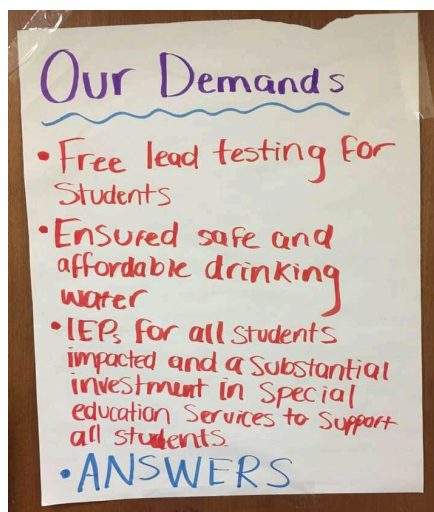 Our Demands
• Free lead testing for
Students
• Ensured safe and
affordable drinking
water
• IEPs for all students
impacted and a substantial
investment in Special
education Services to Support
all students.
• ANSWERS